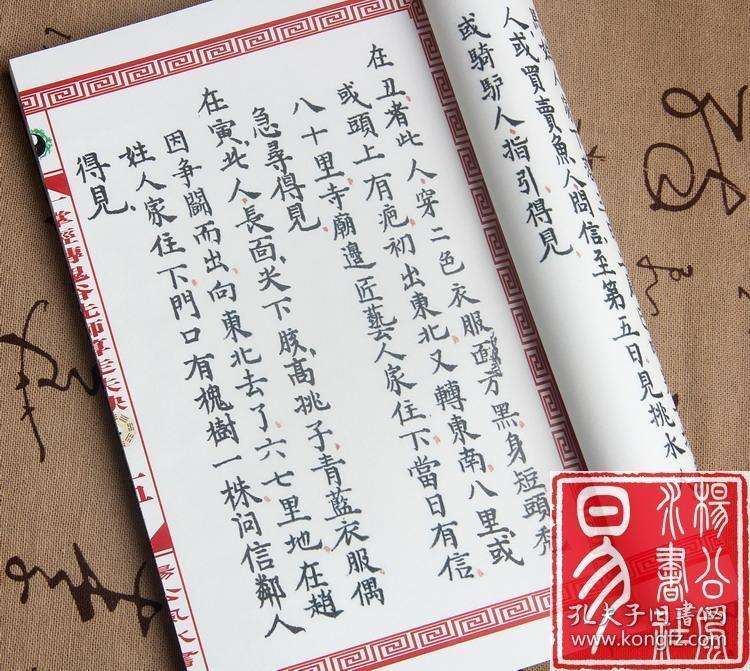 人或買賣魚人問信至第五日見挑水
或騎驴人指引得見
在丑者此人穿二色衣服面方黑身短頭禿
或頭上有疤初出東北又轉東南八里或
八十里寺廟邊匠藝人家住下當日有信
急尋得見
在寅此人長面尖下胲高挑子青藍衣服偶
因争鬪而出向東北去了六七里地在趙
姓人家住下門口有槐樹一株问信鄰人
得見
楊公風
水書社
易
孔夫子旧書网
www.kongfz.com